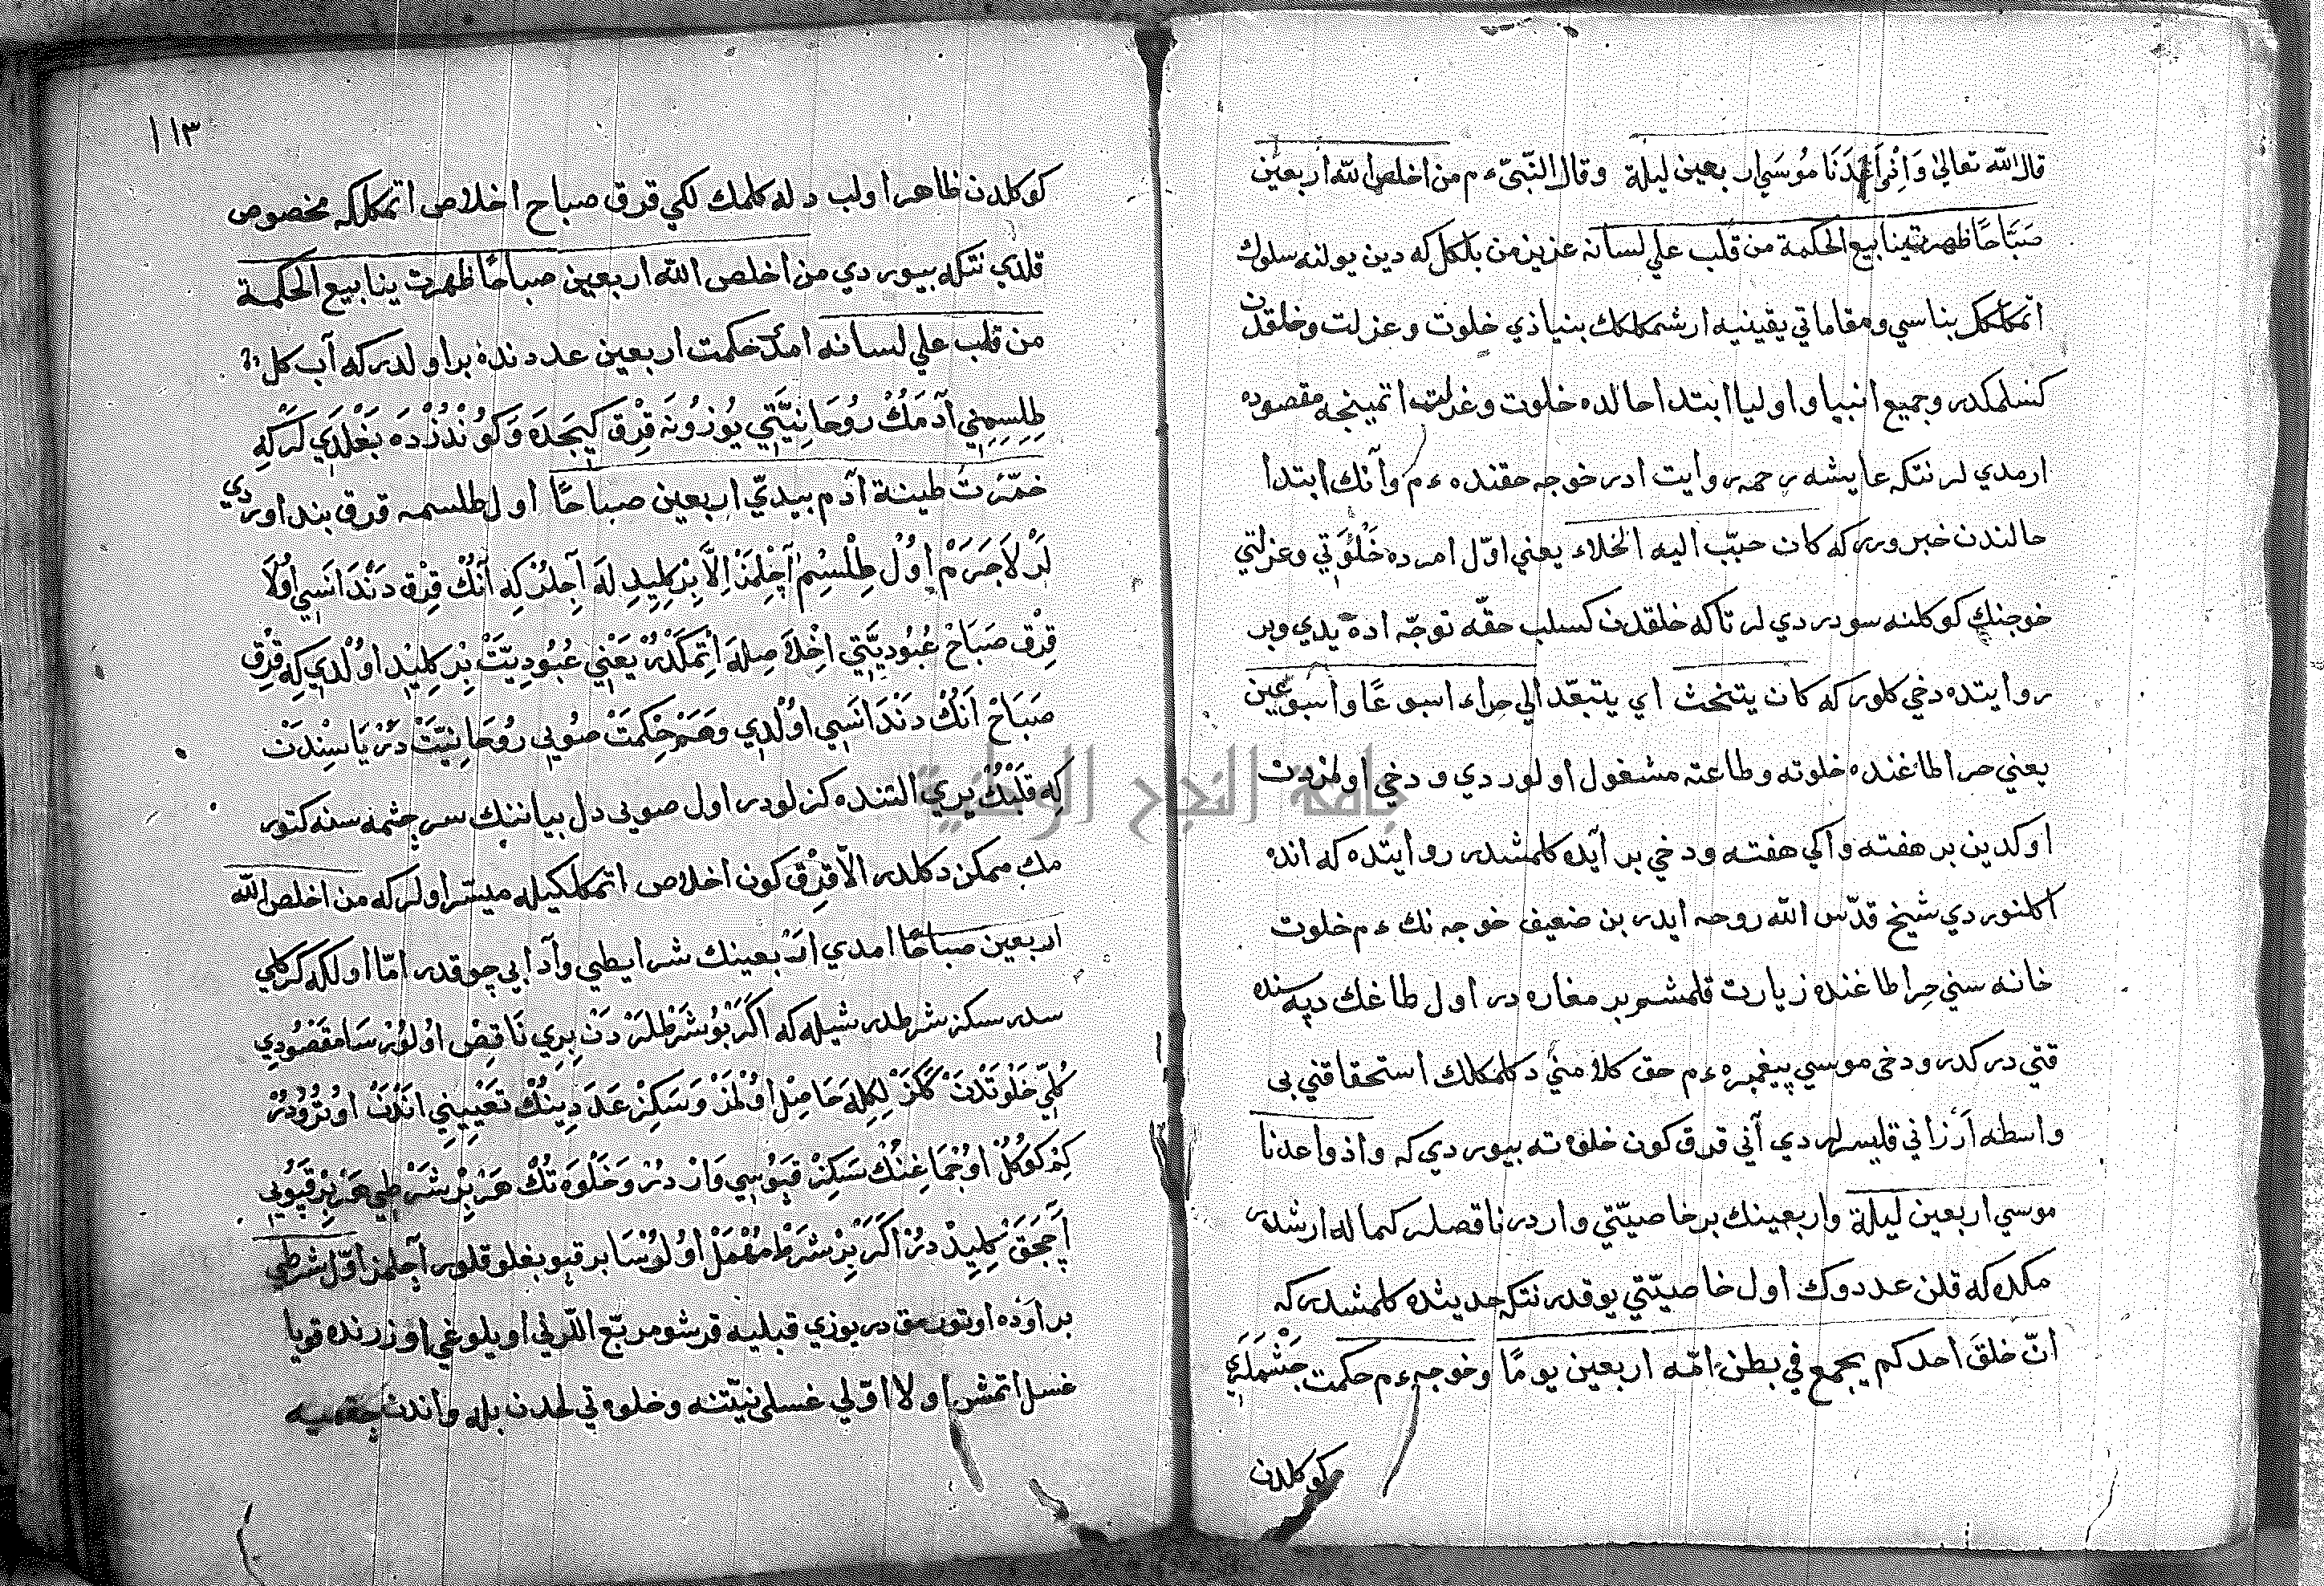 قال الله تعالى وَاِذْ وَاعَدْنَا مُوسَى اربعين ليلة وقال النّبىّ ءم من اخلص لله اربعين
صَبَاحًا ظهرت ينابيع الحكمة من قلب علي لسانه عزيز من بلكل كه دين يولنه سلوك
اتمكلكك بناسي ومقاماتي يقينيه ارشمكلكك بنيادي خلوت وعزلت وخلقدن
كسلمكدر وجميع انبيا واوليا ابتدا حالده خلوت وعزلت اتمينجه مقصوده
ارمدي لر نتكه عايشه رحمه روايت ادر خوجه حقنده ءم وآنك ابتدا
حالندن خبر ويرر كه كان حبّب اليه الخلاء يعني اوّل امرده خَلْوَتي وعزلتي
خوجنك كوكلنه سودردي لر تاكه خلقدن كسلب حقّه توجّه اده يدي وبر
روايتده دخي كلور كه كان يتحنث اي يتبعّد الي حراء اسبوعًا واسبوعين
يعني حرا طاغنده خلوته وطاعته مشغول اولوردي ودخي اولمزدن
اوكدين بر هفته واكي هفته ودخي بر آيده كلمشدر روايتده كه انده
اكلنوردي شيخ قدّس الله روحه ايدر بن ضعيف خوجه نك ءم خلوت
خانه سني حِرا طاغنده زيارت قلمشم بر مغاره در اول طاغك دپه سنده
قتي دركدر ودخى موسي پيغمبره ءم حق كلامنى دكلمكلك استحقاقني بى
واسطه اَرزاني قليسرلردي آني قرق كون خلوته بيوردي كه واذ واعدنا
موسي اربعين ليلة واربعينك بر خاصيّتي واردر ناقصلر كماله ارشدر
مكده كه قلن عددوك اول خاصيّتي يوقدر نتكه حديثده كلمشدر كه
انّ خلقَ احدكم يجمع في بطن امّه اربعين يومًا وخوجه ءم حكمت چَشْمَلَرِي
كوكلدن
١١٣
كوكلدن ظاهر اولب دله كلمك لكي قرق صباح اخلاص اتمكلكه مخصوص
قلدي نتكه بيوردي من اخلص لله اربعين صباحًا ظهرت ينابيع الحكمة
من قلب علي لسانه امدي حكمت اربعين عددنده بر اولدر كه آب كل
طِلِسِمِنِي آدَمَكْ رُوحَانِيَّتِي يُوزُونَه قِرْق كِيجَدَه وَكُونْدُزْدَه بَغْلَدِي لَرْ كِه
خمّرت طينة آدم بيديّ اربعين صباحًا اول طلسمه قرق بند اوردي
لَرْ لاَجَرَمْ اُولْ طِلْسِمْ آچِلْمَزْ اِلاَّ بِرْ كِلِيدِلَه آچِلُرْ كِه آنُكْ قِرْق دَنْدَانَسِي اُولَا
قِرْق صَبَاحْ عُبُودِيَّتِي اِخْلَاصِلَه اِتْمَكْدُرْ يَعْنِي عُبُودِيَّتْ بِرْ كِلِيدْ اُولْدِي كِه قِرْق
صَبَاحْ اَنُكْ دَنْدَانَسِي اُولْدِي وَهَمْ حِكْمَتْ صُويِي رُوحَانِيَّتْ دَرْيَاسِنْدَنْ
كِه قَلْبُكْ يري التنده كزلودر اول صويي دل بياننك سرچشمه سنه كتور
مك ممكن دكلدر الّا قِرْق كون اخلاص اتمكلكيله ميسّر اولر كه من اخلص لله
اربعين صباحًا امدي اربعينك شرايطي وآدابي چوقدر امّا اولكه كركلي
سدر سكز شرطدر شيله كه اَكَرْ بُو شَرْطلَرْدَنْ بِرِي نَاقِصْ اُولُورْسَا مَقْصُودِي
كُلِّي خَلْوَتْدَنْ كَرَكْلِكِلَه حَاصِلْ اُولْمَزْ وَسَكِزْ عَدَدِينُكْ تَعْيِينِي اَنْدَنْ اوُتُرُودُرْ
كِه كُوكُلْ اُوچْمَاغِنُكْ سَكِزْ قَپُوسِي وَارْدُرْ وَخَلْوَه تُكْ هَرْ بِرْ شَرْطِي هَرْ بِرْ قَپُويِي
اَچَجَقْ كِلِيدْدُرْ اَكَرْ بِرْ شَرْط مُهْمَلْ اُولُورْسَا بر قپو بغلو قلور آچلمز اوّل شرطي
بر اَوْده اوتورمق در يوزي قبليه قرشو مربّع اللرلي اويلوغي اوزرنده قويا
غسل اتمش اولا اوّلي غسلي نيّتنه وخلوه تي لحدن بله واندن چقميه